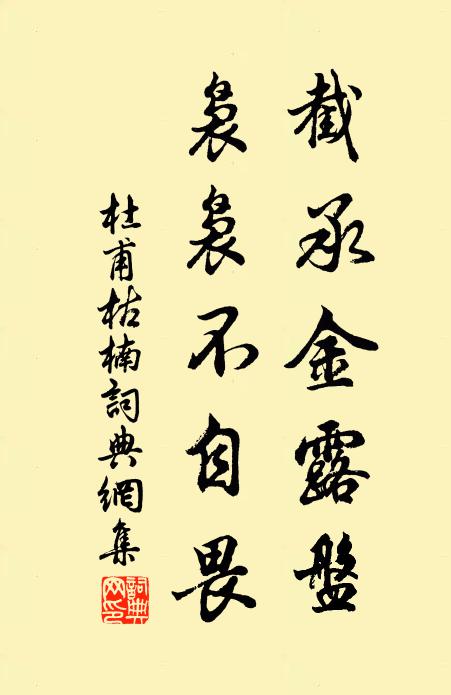 截承金露盤
袅袅不自畏
杜甫枯楠詞典網集
詞典網印